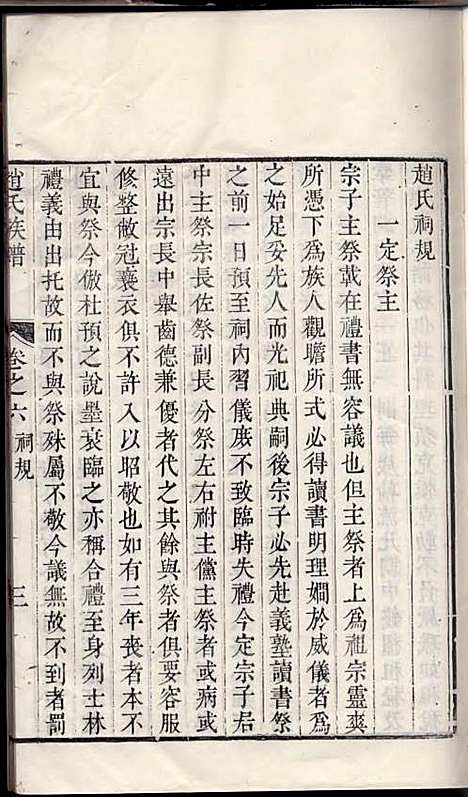 趙氏祠規
一定祭主
宗子主祭載在禮書無容議也但主祭者上爲祖宗靈爽
所憑下爲族人觀瞻所式必得讀書明理嫺於威儀者爲
之始足妥先人而光祀典嗣後宗子必先赴義塾讀書祭
之前一日預至祠內習儀庻不致臨時失禮今定宗子居
中主祭宗長佐祭副長分祭左右祔主黨主祭者或病或
遠出宗長中舉齒德兼優者代之其餘與祭者俱要容服
修整敝冠褻衣俱不許入以昭敬也如有三年喪者本不
宜與祭今倣杜預之說墨衰臨之亦稱合禮至身列士林
禮義由出托故而不與祭殊屬不敬今議無故不到者罰
趙氏族譜
卷之六 祠規
三